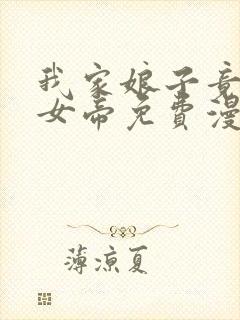 我家娘子竟
女帝免费漫
薄凉夏